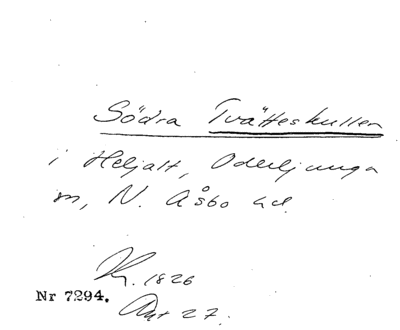 Södra Tvätteskullen
i Heljalt, Oderljunga
m, N. Åsbo hd.
K. 1826
Nr 7294.
Akt 27.